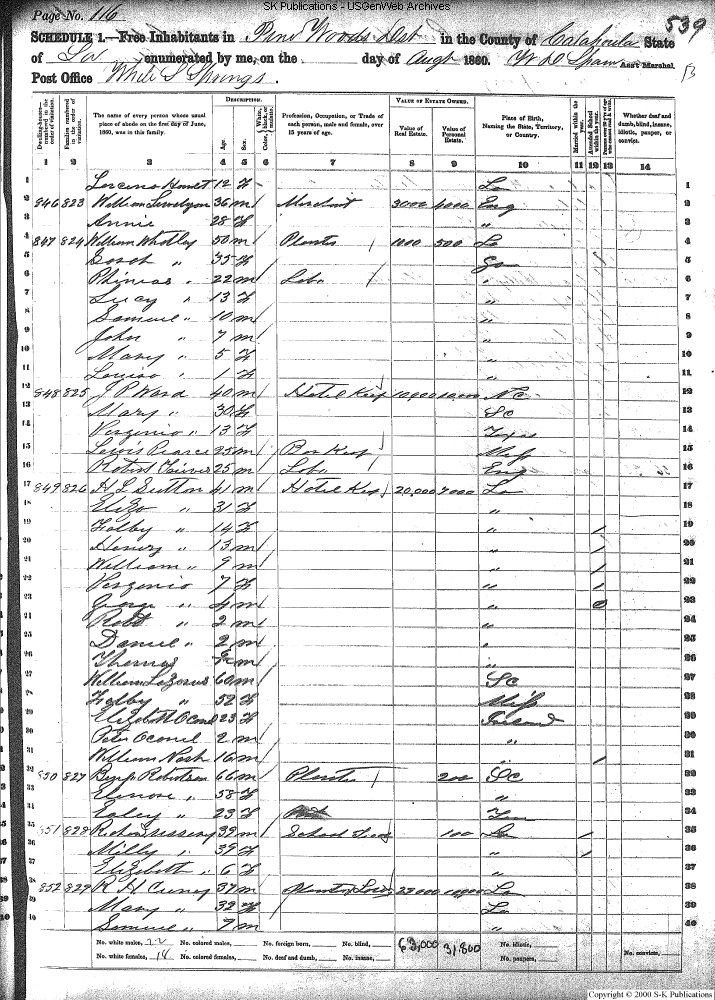 SK Publications - USGenWeb Archives
Page No. 116
539
SCHEDULE 1.—Free Inhabitants in Piney Woods Dist in the County of Catahoula State
of La enumerated by me, on the day of Augt 1860. Ass't Marshal.
Post Office White S Springs.
DESCRIPTION. VALUE OF ESTATE OWNED.
Dwelling-houses—numbered in the order of visitation. Families numbered in the order of visitation. The name of every person whose usual place of abode on the first day of June, 1860, was in this family. Age. Sex. Color, White, black, or mulatto. Profession, Occupation, or Trade of each person, male and female, over 15 years of age. Value of Real Estate. Value of Personal Estate. Place of Birth, Naming the State, Territory, or Country. Married within the year. Attended School within the year. Whether deaf and dumb, blind, insane, idiotic, pauper, or convict.
1 2 3 4 5 6 7 8 9 10 11 12 13 14
1 12 F La 1
2 846 823 William 36 m Merchant 3000 4000 Eng 2
3 Annie 28 F " 3
4 847 824 William Whatley 50 m Planter 1000 500 La 4
5 Sarah " 35 F Ga 5
6 Phineas " 22 m Labr " 6
7 Lucy " 13 F " 7
8 Samuel " 10 m " 8
9 John " 7 m " 9
10 Mary " 5 F " 10
11 Louisa " 1 F " 11
12 848 825 J P Ward 40 m Hotel Keep 10,000 10,000 NC 12
13 Mary " 30 F SC 13
14 Virginia " 13 F Texas 14
15 Lewis Pearce 25 m Bar Keep Miss 15
16 Robert 25 m Labr Eng 16
17 849 826 H L Sutton 41 m Hotel Keep 20,000 7000 La 17
18 Eliza " 31 F " 18
19 " 14 F " 19
20 Henry " 13 m " 20
21 William " 9 m " 21
22 Virginia 7 F " 22
23 George " 4 m " 23
24 Robt " 2 m " 24
25 Daniel " 2 m " 25
26 Thomas m " 26
27 William Lazarus 60 m SC 27
28 " 52 F Miss 28
29 Elizabeth Oconel 23 F Ireland 29
30 Peter Oconel 2 m " 30
31 William Nash 16 m " 31
32 850 827 Benj Robertson 66 m Planter 200 SC 32
33 Elenore " 58 F " 33
34 " 23 F Ten 34
35 851 828 39 m School Teach 100 La 35
36 Milly " 39 F " 36
37 Elizabeth " 6 F " 37
38 852 829 R H Cuney 37 m 10,000 La 38
39 Mary " 32 F La 39
40 Samuel " 7 m " 40
No. white males, 22 No. colored males, No. foreign born, No. blind, 63,000 31,800 No. idiotic, No. convicts,
No. white females, 18 No. colored females, No. deaf and dumb, No. insane, No. paupers,
Copyright © 2000 S-K Publications